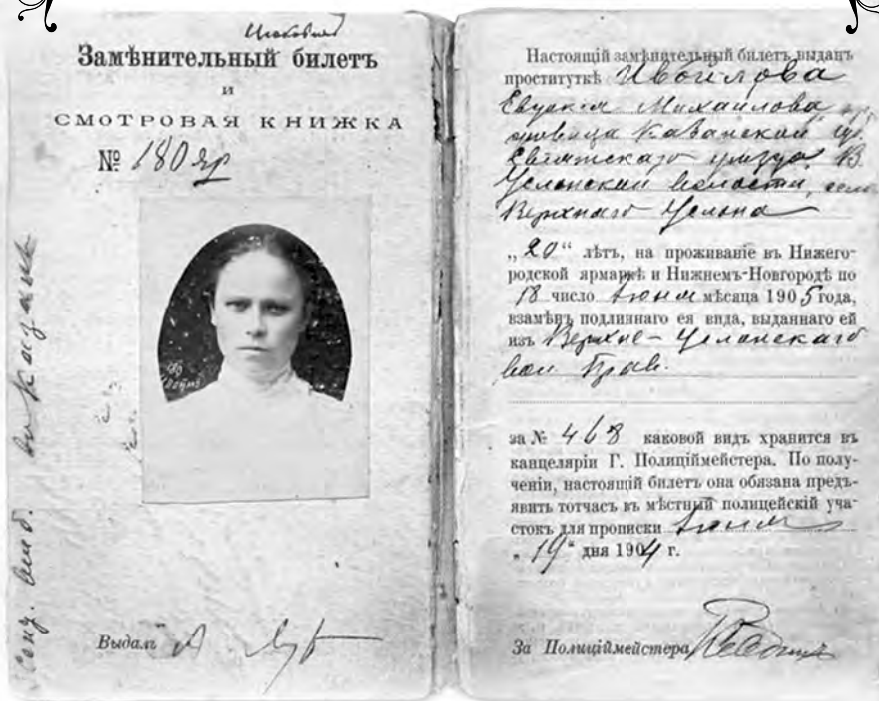 Замѣнительный билетъ
и
СМОТРОВАЯ КНИЖКА
№ 180 яр
Выдалъ
въ Казань
Настоящій замѣнительный билетъ выданъ
проституткѣ
Евдокия Михайлова
Казанской гу.
Свіяжскаго уѣзда В.
Услонской волости, села
Верхняго Услона
„20“ лѣтъ, на проживаніе въ Нижего-
родской ярмаркѣ и Нижнемъ-Новгородѣ по
18 число Іюня мѣсяца 1905 года,
взамѣнъ подлиннаго ея вида, выданнаго ей
изъ Верхне-Услонскаго
вол. Прав.
за № 468 каковой видъ хранится въ
канцеляріи Г. Полиціймейстера. По полу-
ченіи, настоящій билетъ она обязана предъ-
явить тотчасъ въ мѣстный полицейскій уча-
стокъ для прописки Іюня
„19“ дня 1904 г.
За Полиціймейстера